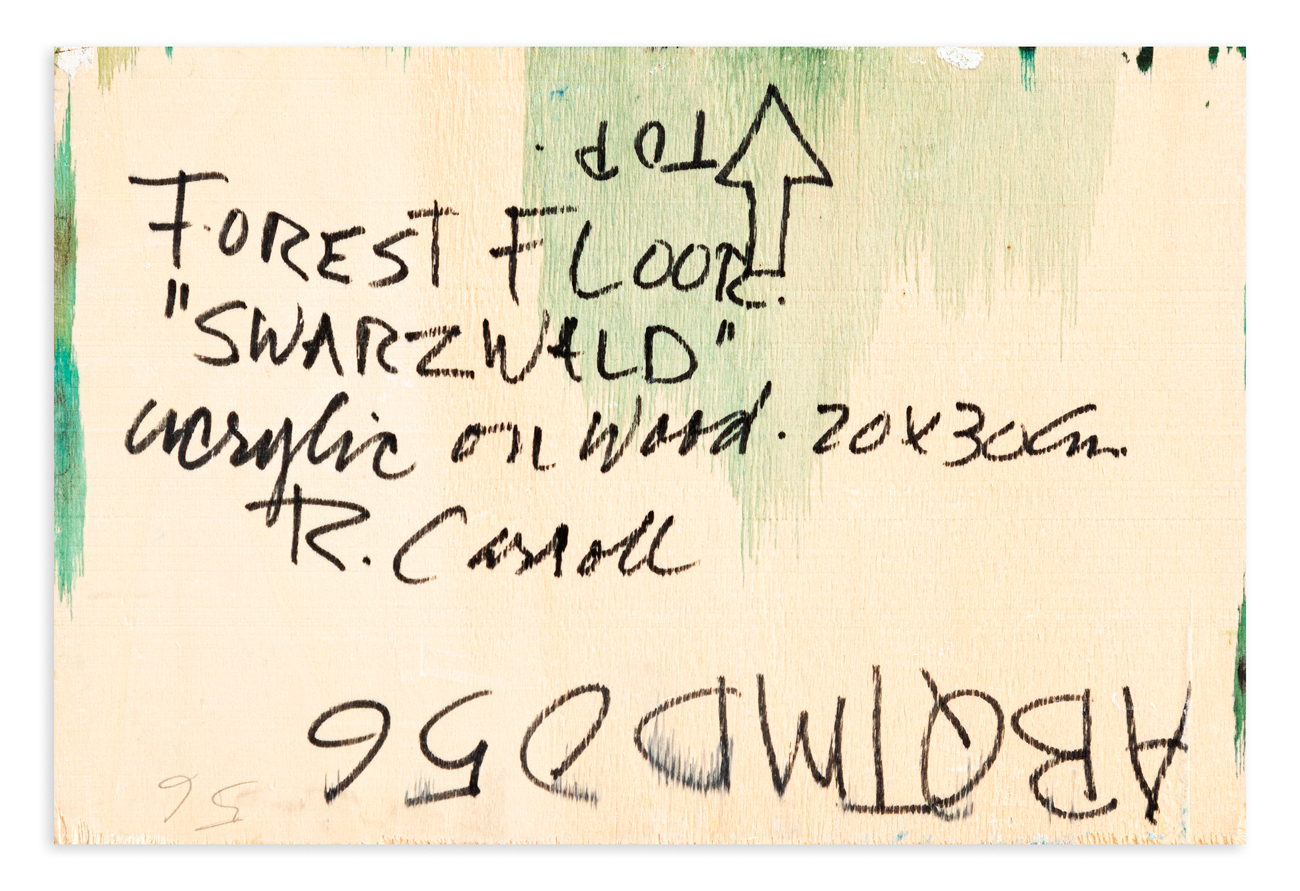 TOP
FOREST FLOOR.
"SWARZWALD"
acrylic on wood. 20x30cm.
R. Carroll
ABQTMD056
56